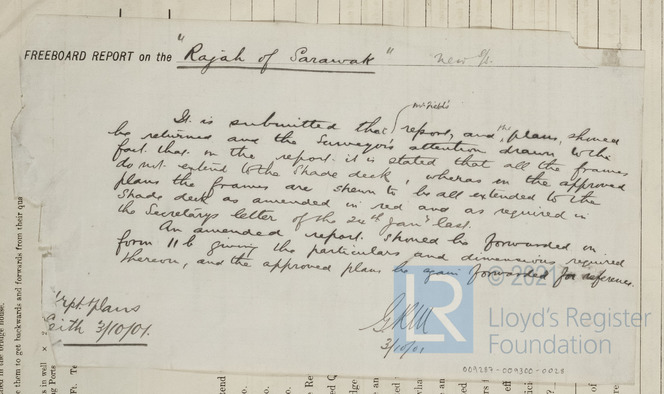 FREEBOARD REPORT on the "Rajah of Sarawak" new S/S.
Mr Field's
It is submitted that report, and the plans, should
be returned and the Surveyors attention drawn to the
fact that on the report it is stated that all the frames
do not extend to the Shade deck, wheras in the approved
plans the frames are shewn to be all extended to the
Shade deck as amended in red and as required in
the Secretary's letter of the 24th Jany last.
An amended report should be forwarded on
form 11b giving the particulars and dimensions required
thereon, and the approved plans be again forwarded for reference.
Rpt. plans
with 3/10/01.
GRM
3/10/01
© 2021
LR
Lloyd's Register
Foundation
009287-009300-0028